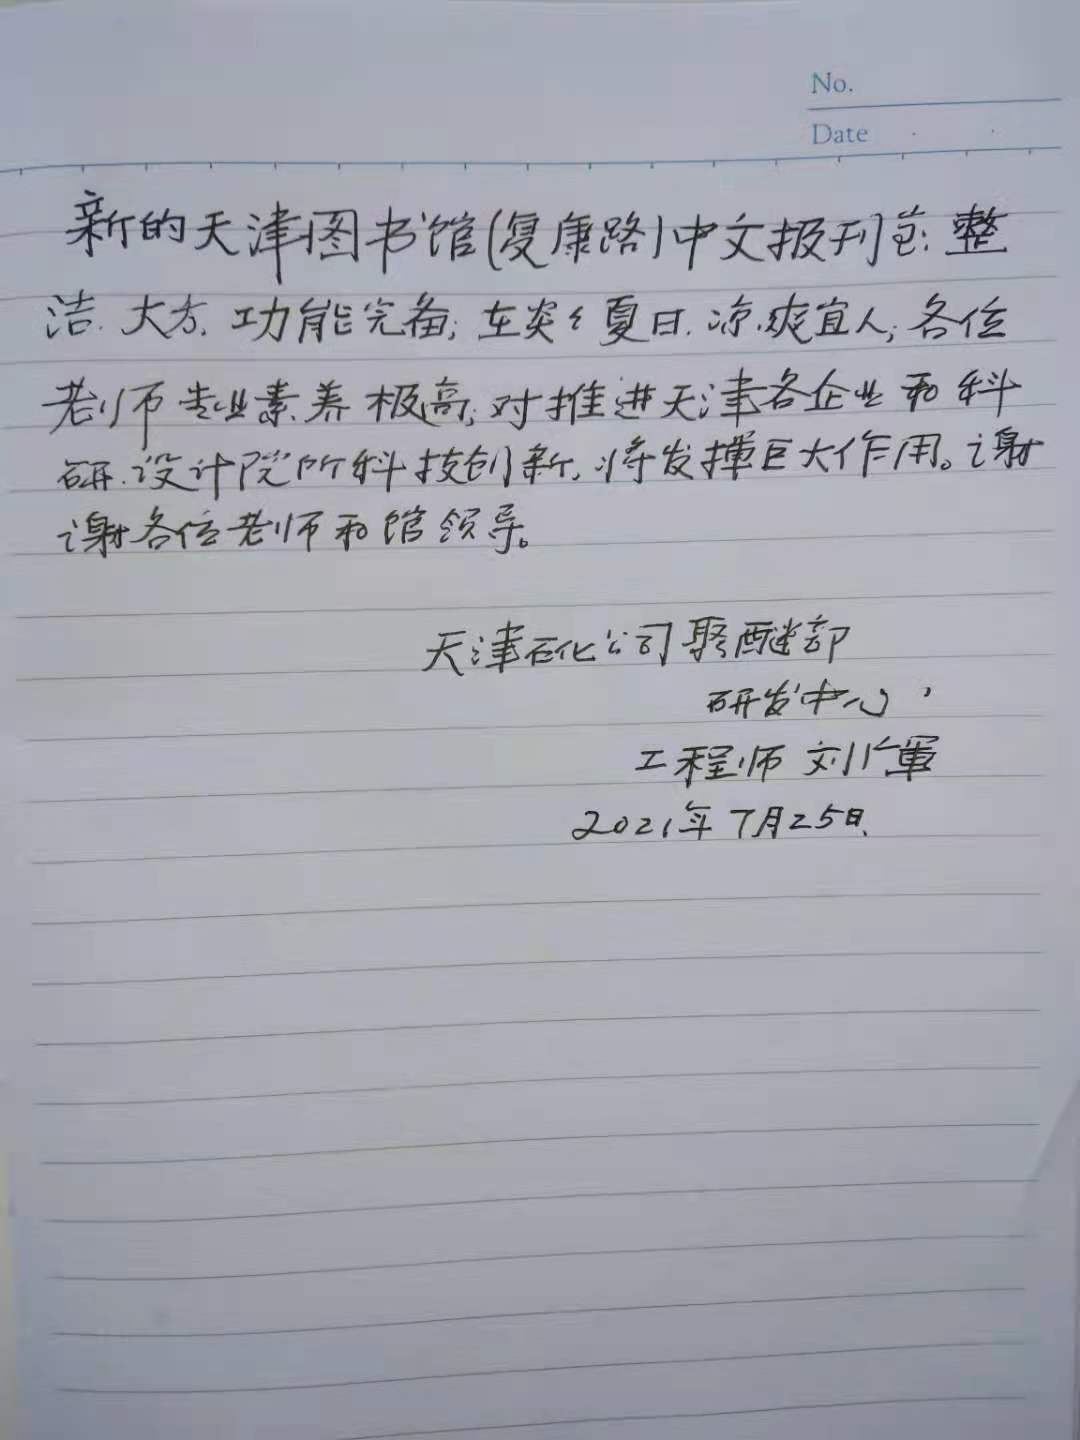 No.
Date
新的天津图书馆(复康路)中文报刊室:整
洁.大方.功能完备;在炎炎夏日.凉爽宜人;各位
老师专业素养极高;对推进天津各企业和科
研.设计院所科技创新,将发挥巨大作用。谢
谢各位老师和馆领导。
天津石化公司聚醚部
研发中心
工程师 刘军
2021年7月25日